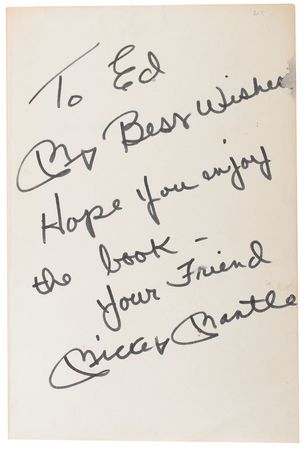 To Ed
My Best Wishes
Hope you enjoy
the book -
your Friend
Mickey Mantle